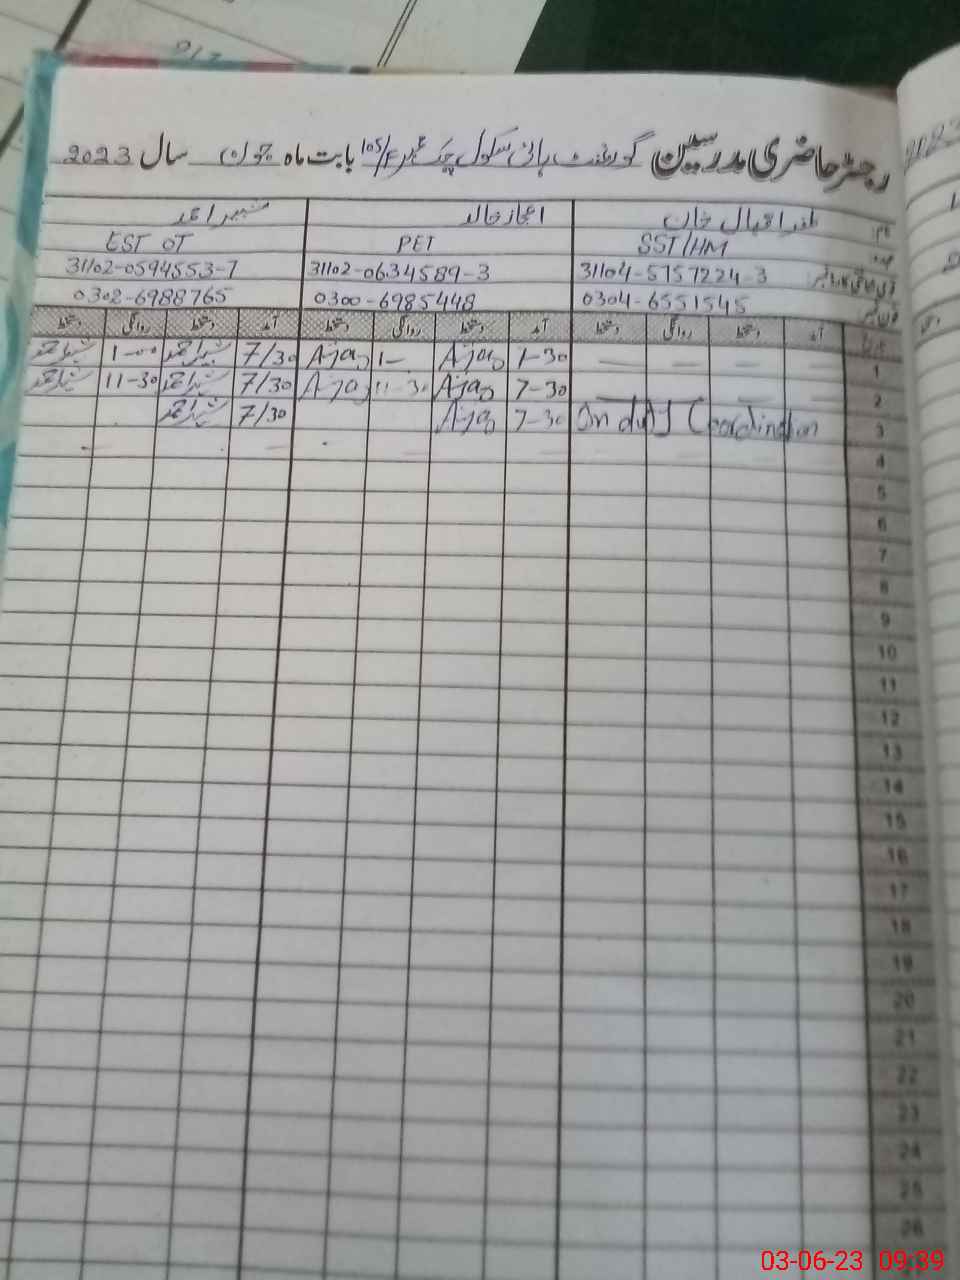 رجسٹر حاضری مدرسین گورنمنٹ ہائی سکول چک نمبر 105/F بابت ماہ جون سال 2023
نام ظفر اقبال خان اعجاز خالد شبیر احمد
عہدہ SST/HM PET EST OT
قومی شناختی کارڈ نمبر 31104-5757224-3 31102-0634589-3 31102-0594553-7
فون نمبر 0304-6551545 0300-6985448 0302-6988765
تاریخ آمد دستخط روانگی دستخط آمد دستخط روانگی دستخط آمد دستخط روانگی دستخط
1 — — — — 7-30 Ajaz 1- Ajaz 7/30 شبیر احمد 1-00 شبیر احمد
2 7-30 Ajaz 11-30 Ajaz 7/30 شبیر احمد 11-30 شبیر احمد
3 On duty Coordination 7-30 Ajaz 7/30 شبیر احمد
4
5
6
7
8
9
10
11
12
13
14
15
16
17
18
19
20
21
22
23
24
25
26
03-06-23 09:39